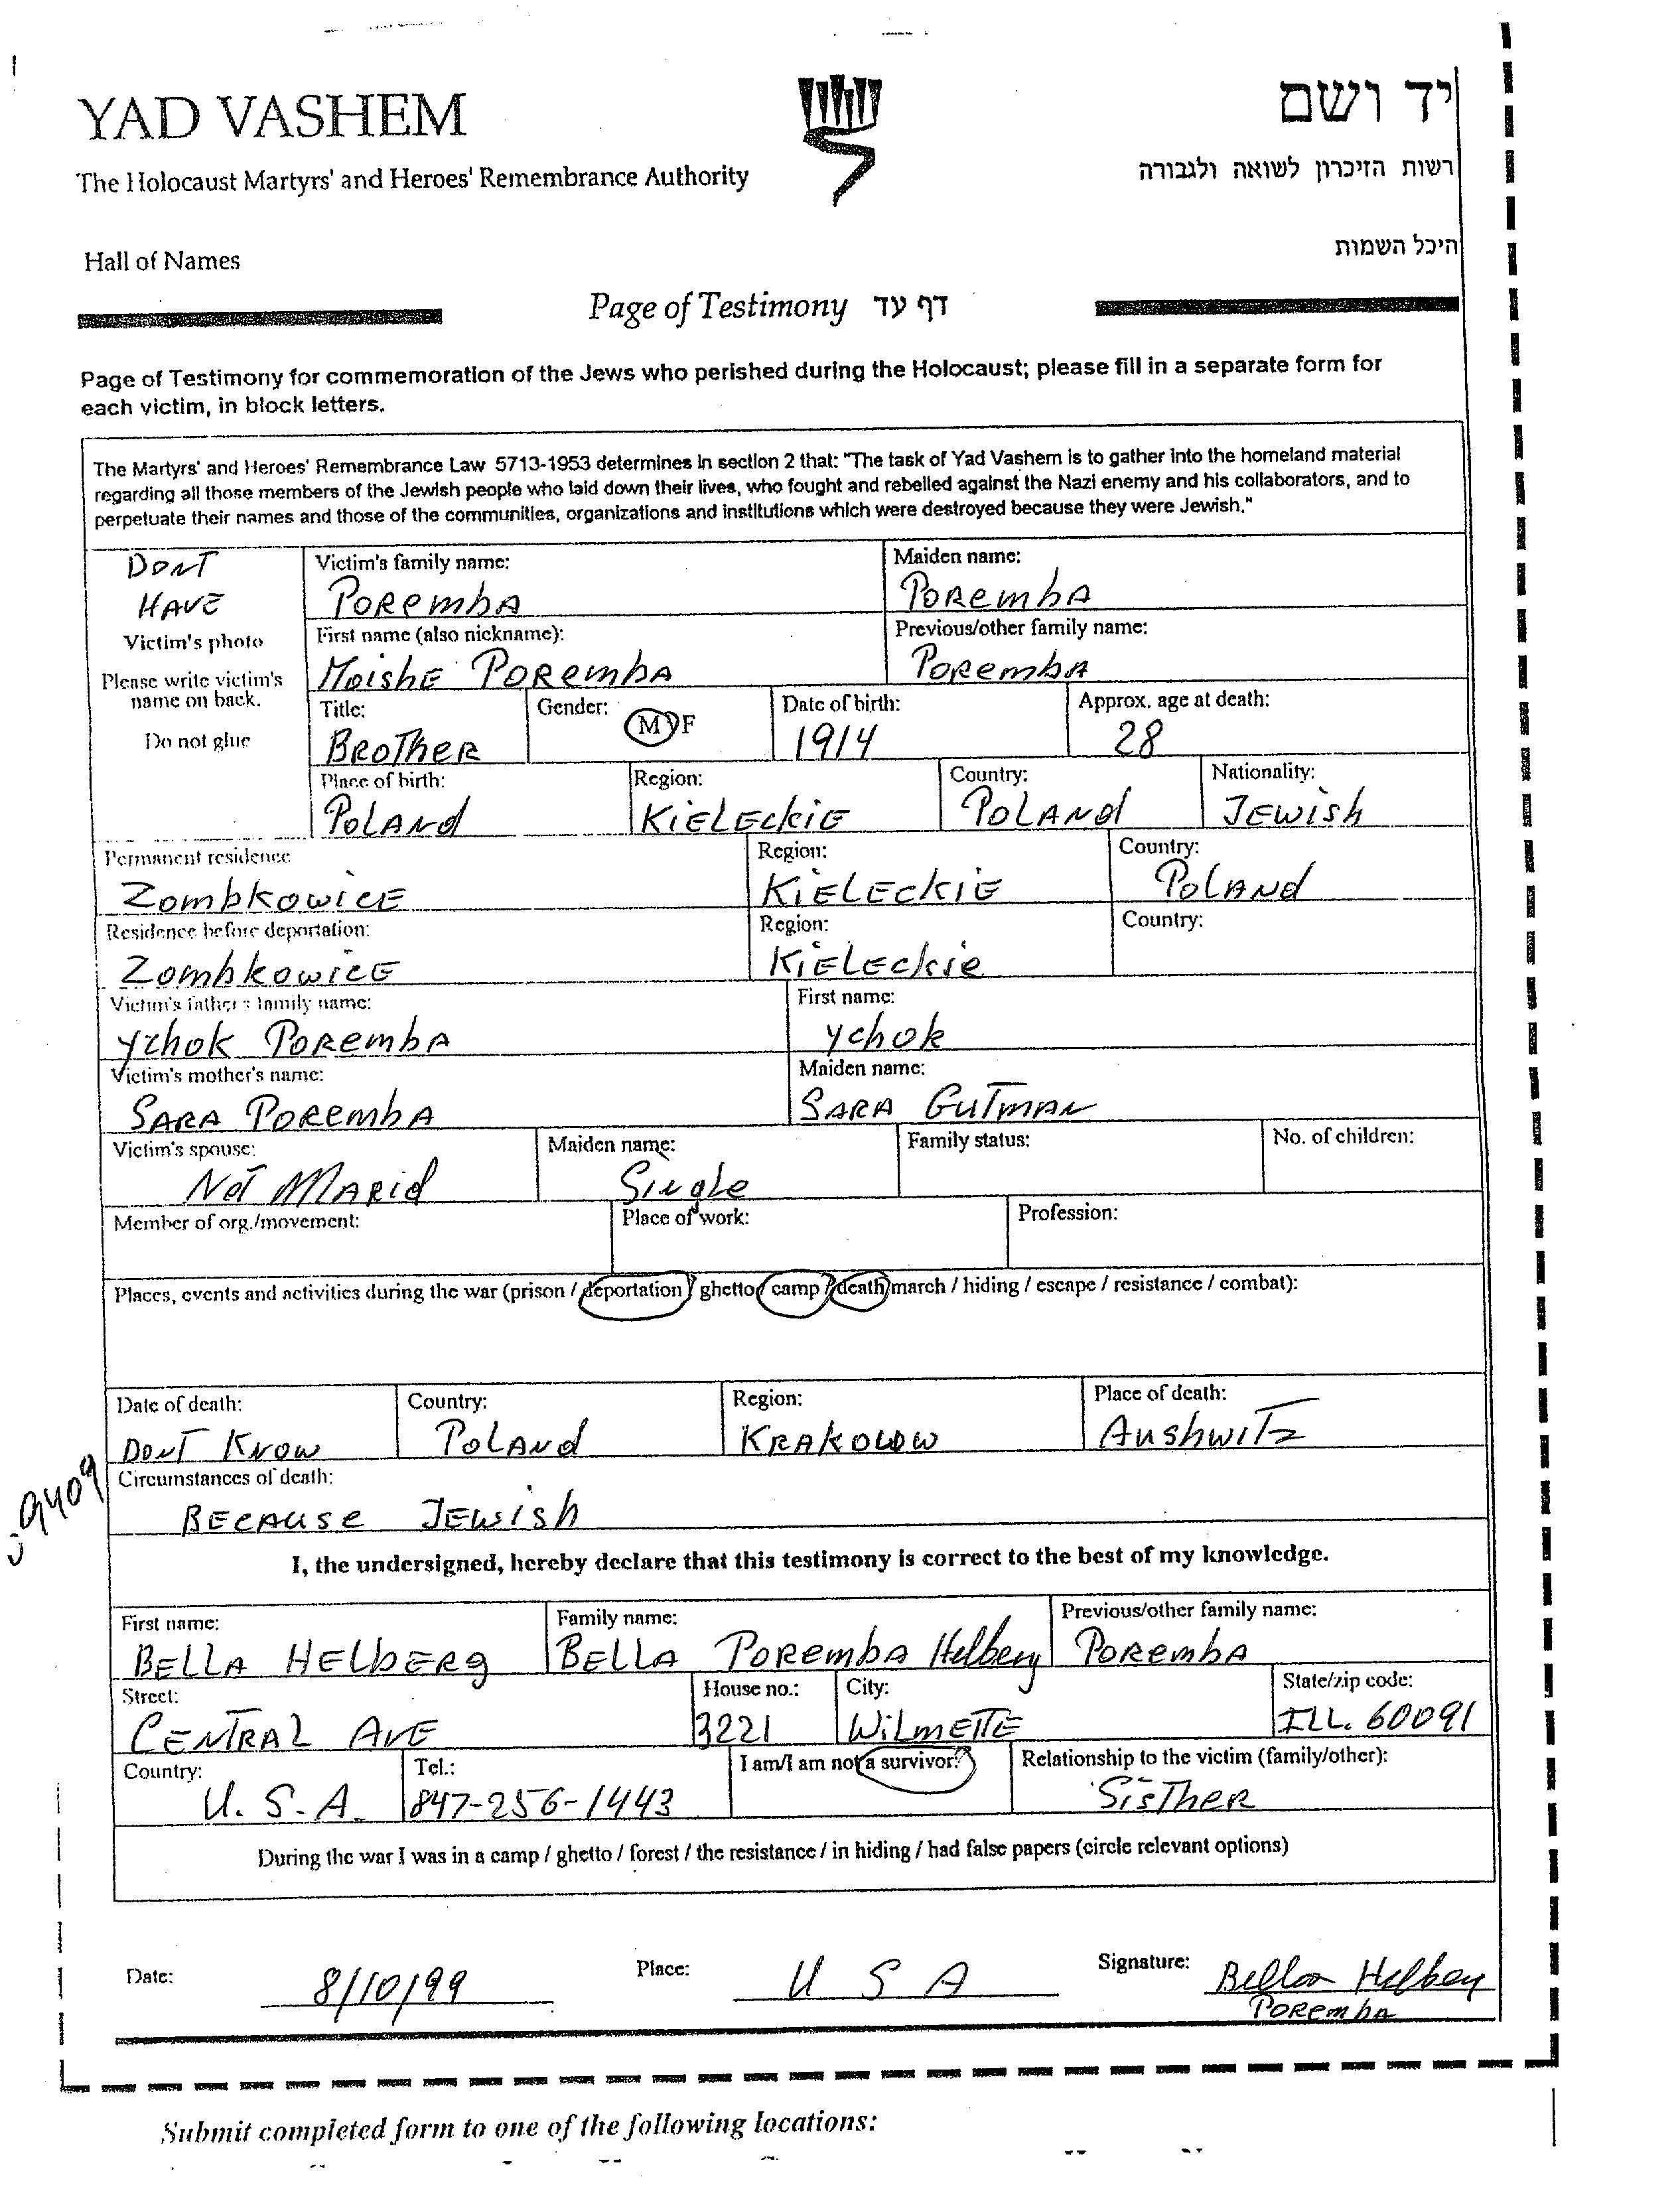 YAD VASHEM
יד ושם
The Holocaust Martyrs' and Heroes' Remembrance Authority
רשות הזיכרון לשואה ולגבורה
Hall of Names
היכל השמות
Page of Testimony דף עד
Page of Testimony for commemoration of the Jews who perished during the Holocaust; please fill in a separate form for
each victim, in block letters.
The Martyrs' and Heroes' Remembrance Law 5713-1953 determines in section 2 that: "The task of Yad Vashem is to gather into the homeland material
regarding all those members of the Jewish people who laid down their lives, who fought and rebelled against the Nazi enemy and his collaborators, and to
perpetuate their names and those of the communities, organizations and institutions which were destroyed because they were Jewish."
DONT
HAVE
Victim's photo
Please write victim's
name on back.
Do not glue
Victim's family name: Maiden name:
POREMBA POREMBA
First name (also nickname): Previous/other family name:
MOISHE POREMBA POREMBA
Title: Gender: M/F Date of birth: Approx. age at death:
BROTHER 1914 28
Place of birth: Region: Country: Nationality:
POLAND KIELECKIE POLAND JEWISH
Permanent residence Region: Country:
ZOMBKOWICE KIELECKIE POLAND
Residence before deportation: Region: Country:
ZOMBKOWICE KIELECKIE
Victim's father's family name: First name:
YCHOK POREMBA YCHOK
Victim's mother's name: Maiden name:
SARA POREMBA SARA GUTMAN
Victim's spouse: Maiden name: Family status: No. of children:
NOT MARID Single
Member of org./movement: Place of work: Profession:
Places, events and activities during the war (prison / deportation / ghetto / camp / death march / hiding / escape / resistance / combat):
Date of death: Country: Region: Place of death:
DONT KNOW POLAND KRAKOLOW AUSHWITZ
9409
Circumstances of death:
BECAUSE JEWISH
I, the undersigned, hereby declare that this testimony is correct to the best of my knowledge.
First name: Family name: Previous/other family name:
BELLA HELBERG BELLA POREMBA Helberg POREMBA
Street: House no.: City: State/zip code:
CENTRAL AVE 3221 WILMETTE ILL. 60091
Country: Tel.: I am/I am not a survivor: Relationship to the victim (family/other):
U. S. A. 847-256-1443 SISTHER
During the war I was in a camp / ghetto / forest / the resistance / in hiding / had false papers (circle relevant options)
Date: 8/10/99 Place: U S A Signature: Bella Helberg
POREMBA
Submit completed form to one of the following locations: